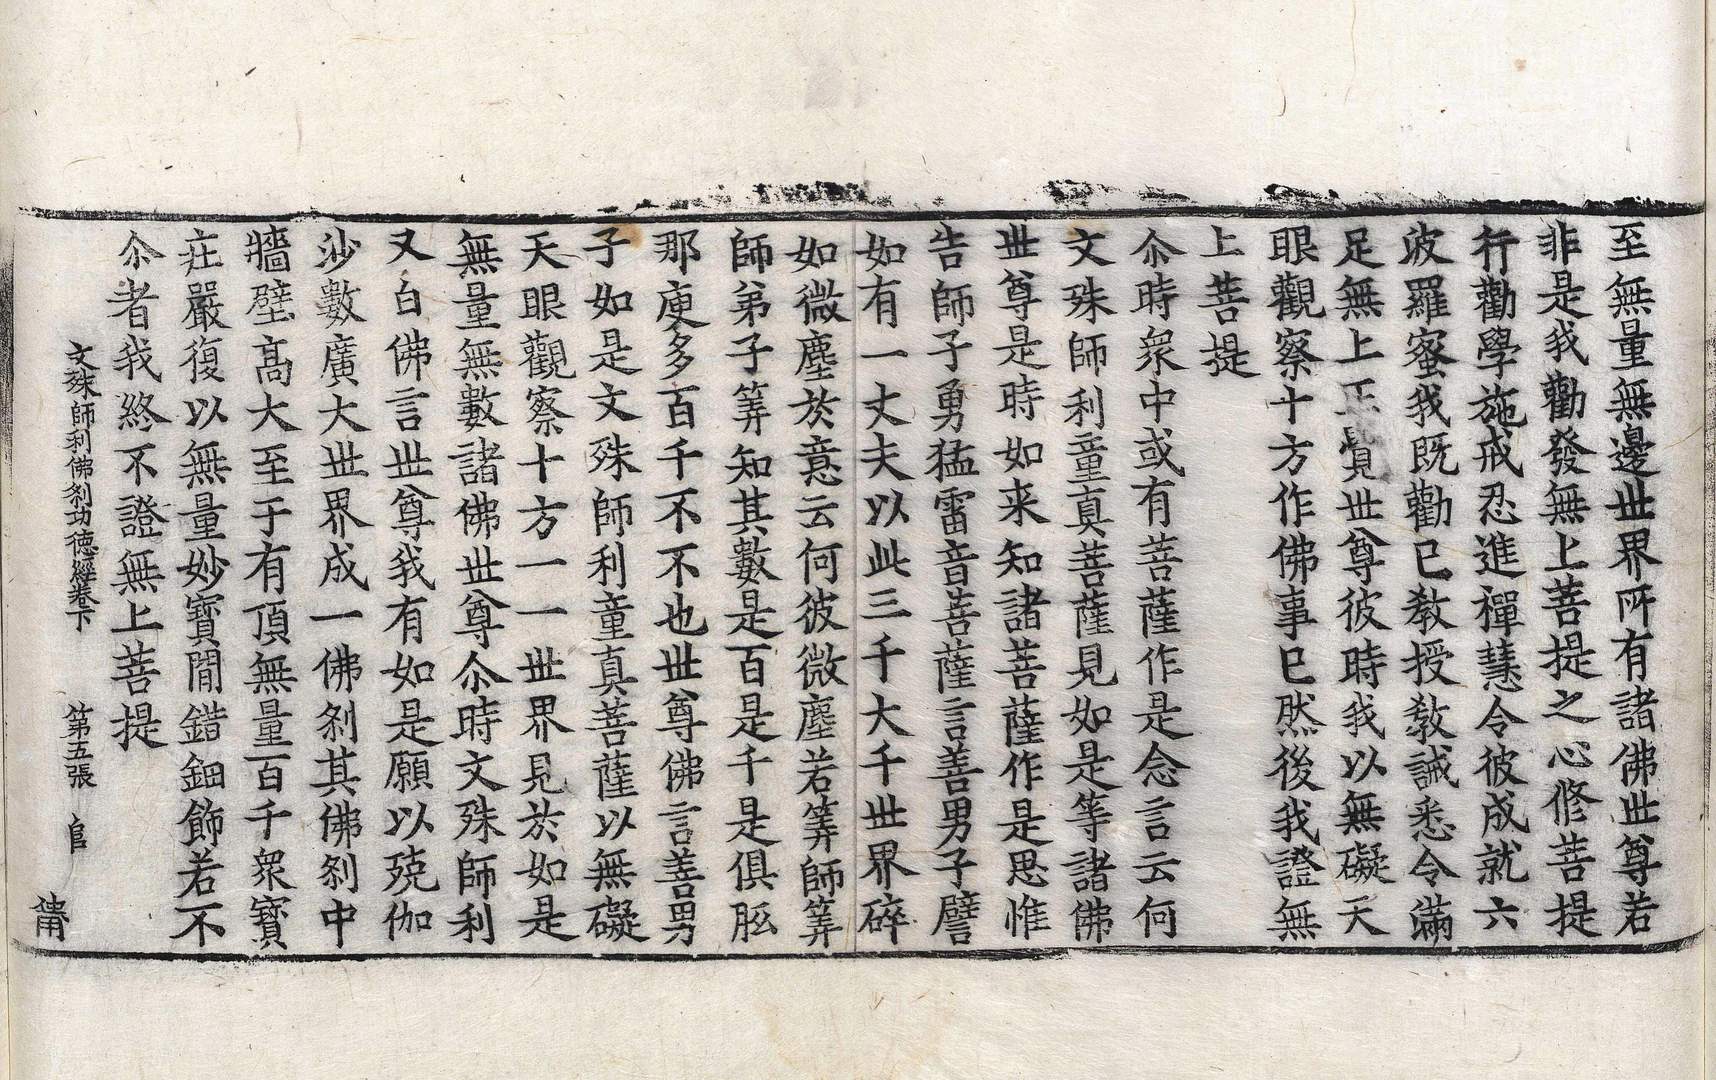 至無量無邊世界所有諸佛世尊若
非是我勸發無上菩提之心修菩提
行勸學施戒忍進禪慧令彼成就六
波羅蜜我既勸已教授教誡悉令滿
足無上正覺世尊彼時我以無礙天
眼觀察十方作佛事已然後我證無
上菩提
尒時眾中或有菩薩作是念言云何
文殊師利童真菩薩見如是等諸佛
世尊是時如来知諸菩薩作是思惟
告師子勇猛雷音菩薩言善男子譬
如有一丈夫以此三千大千世界碎
如微塵於意云何彼微塵若筭師筭
師弟子筭知其數是百是千是俱胝
那庾多百千不不也世尊佛言善男
子如是文殊師利童真菩薩以無礙
天眼觀察十方一一世界見於如是
無量無數諸佛世尊尒時文殊師利
又白佛言世尊我有如是願以殑伽
沙數廣大世界成一佛剎其佛剎中
牆壁高大至于有頂無量百千眾寶
莊嚴復以無量妙寶間錯鈿飾若不
尒者我終不證無上菩提
文殊師利佛剎功德經卷下 第五張 官